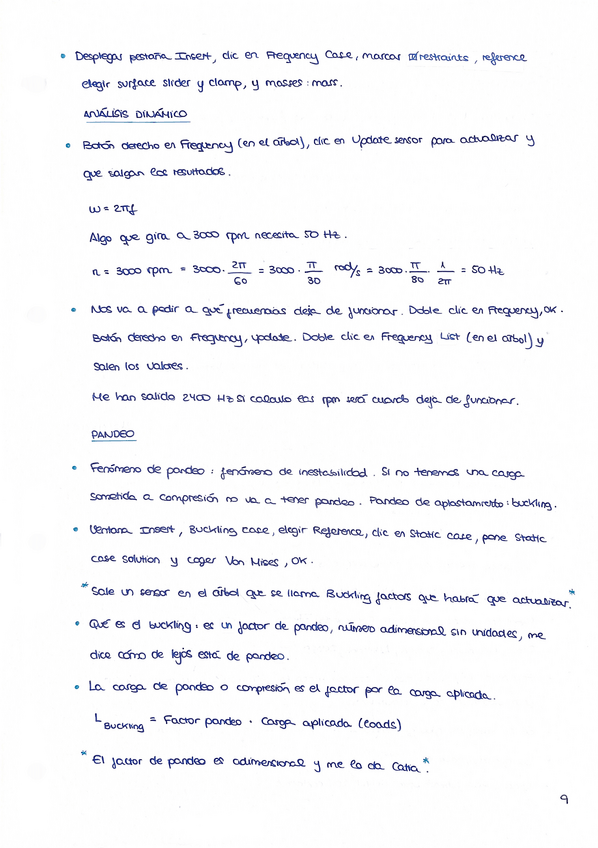 • Desplegar pestaña Insert, clic en Frequency Case, marcar restraints, reference
elegir surface slider y clamp, y masses: mass.
ANÁLISIS DINÁMICO
• Botón derecho en Frequency (en el árbol), clic en Update sensor para actualizar y
que salgan los resultados.
ω = 2πf
Algo que gira a 3000 rpm necesita 50 Hz.
n = 3000 rpm = 3000 · 2π/60 = 3000 · π/30 rad/s = 3000 · π/30 · 1/2π = 50 Hz
• Nos va a pedir a qué frecuencias deja de funcionar. Doble clic en Frequency, OK.
Botón derecho en Frequency, update. Doble clic en Frequency List (en el árbol) y
salen los valores.
Me han salido 2400 Hz si calculo las rpm será cuando deja de funcionar.
PANDEO
• Fenómeno de pandeo: fenómeno de inestabilidad. Si no tenemos una carga
sometida a compresión no va a tener pandeo. Pandeo de aplastamiento: buckling.
• Ventana Insert, Buckling case, elegir Reference, clic en Static case, pone Static
case solution y coger Von Mises, OK.
* Sale un sensor en el árbol que se llama Buckling factors que habrá que actualizar. *
• Qué es el buckling: es un factor de pandeo, número adimensional sin unidades, me
dice cómo de lejos está de pandeo.
• La carga de pandeo o compresión es el factor por la carga aplicada.
L Buckling = Factor pandeo · Carga aplicada (loads)
* El factor de pandeo es adimensional y me lo da Catia. *
9